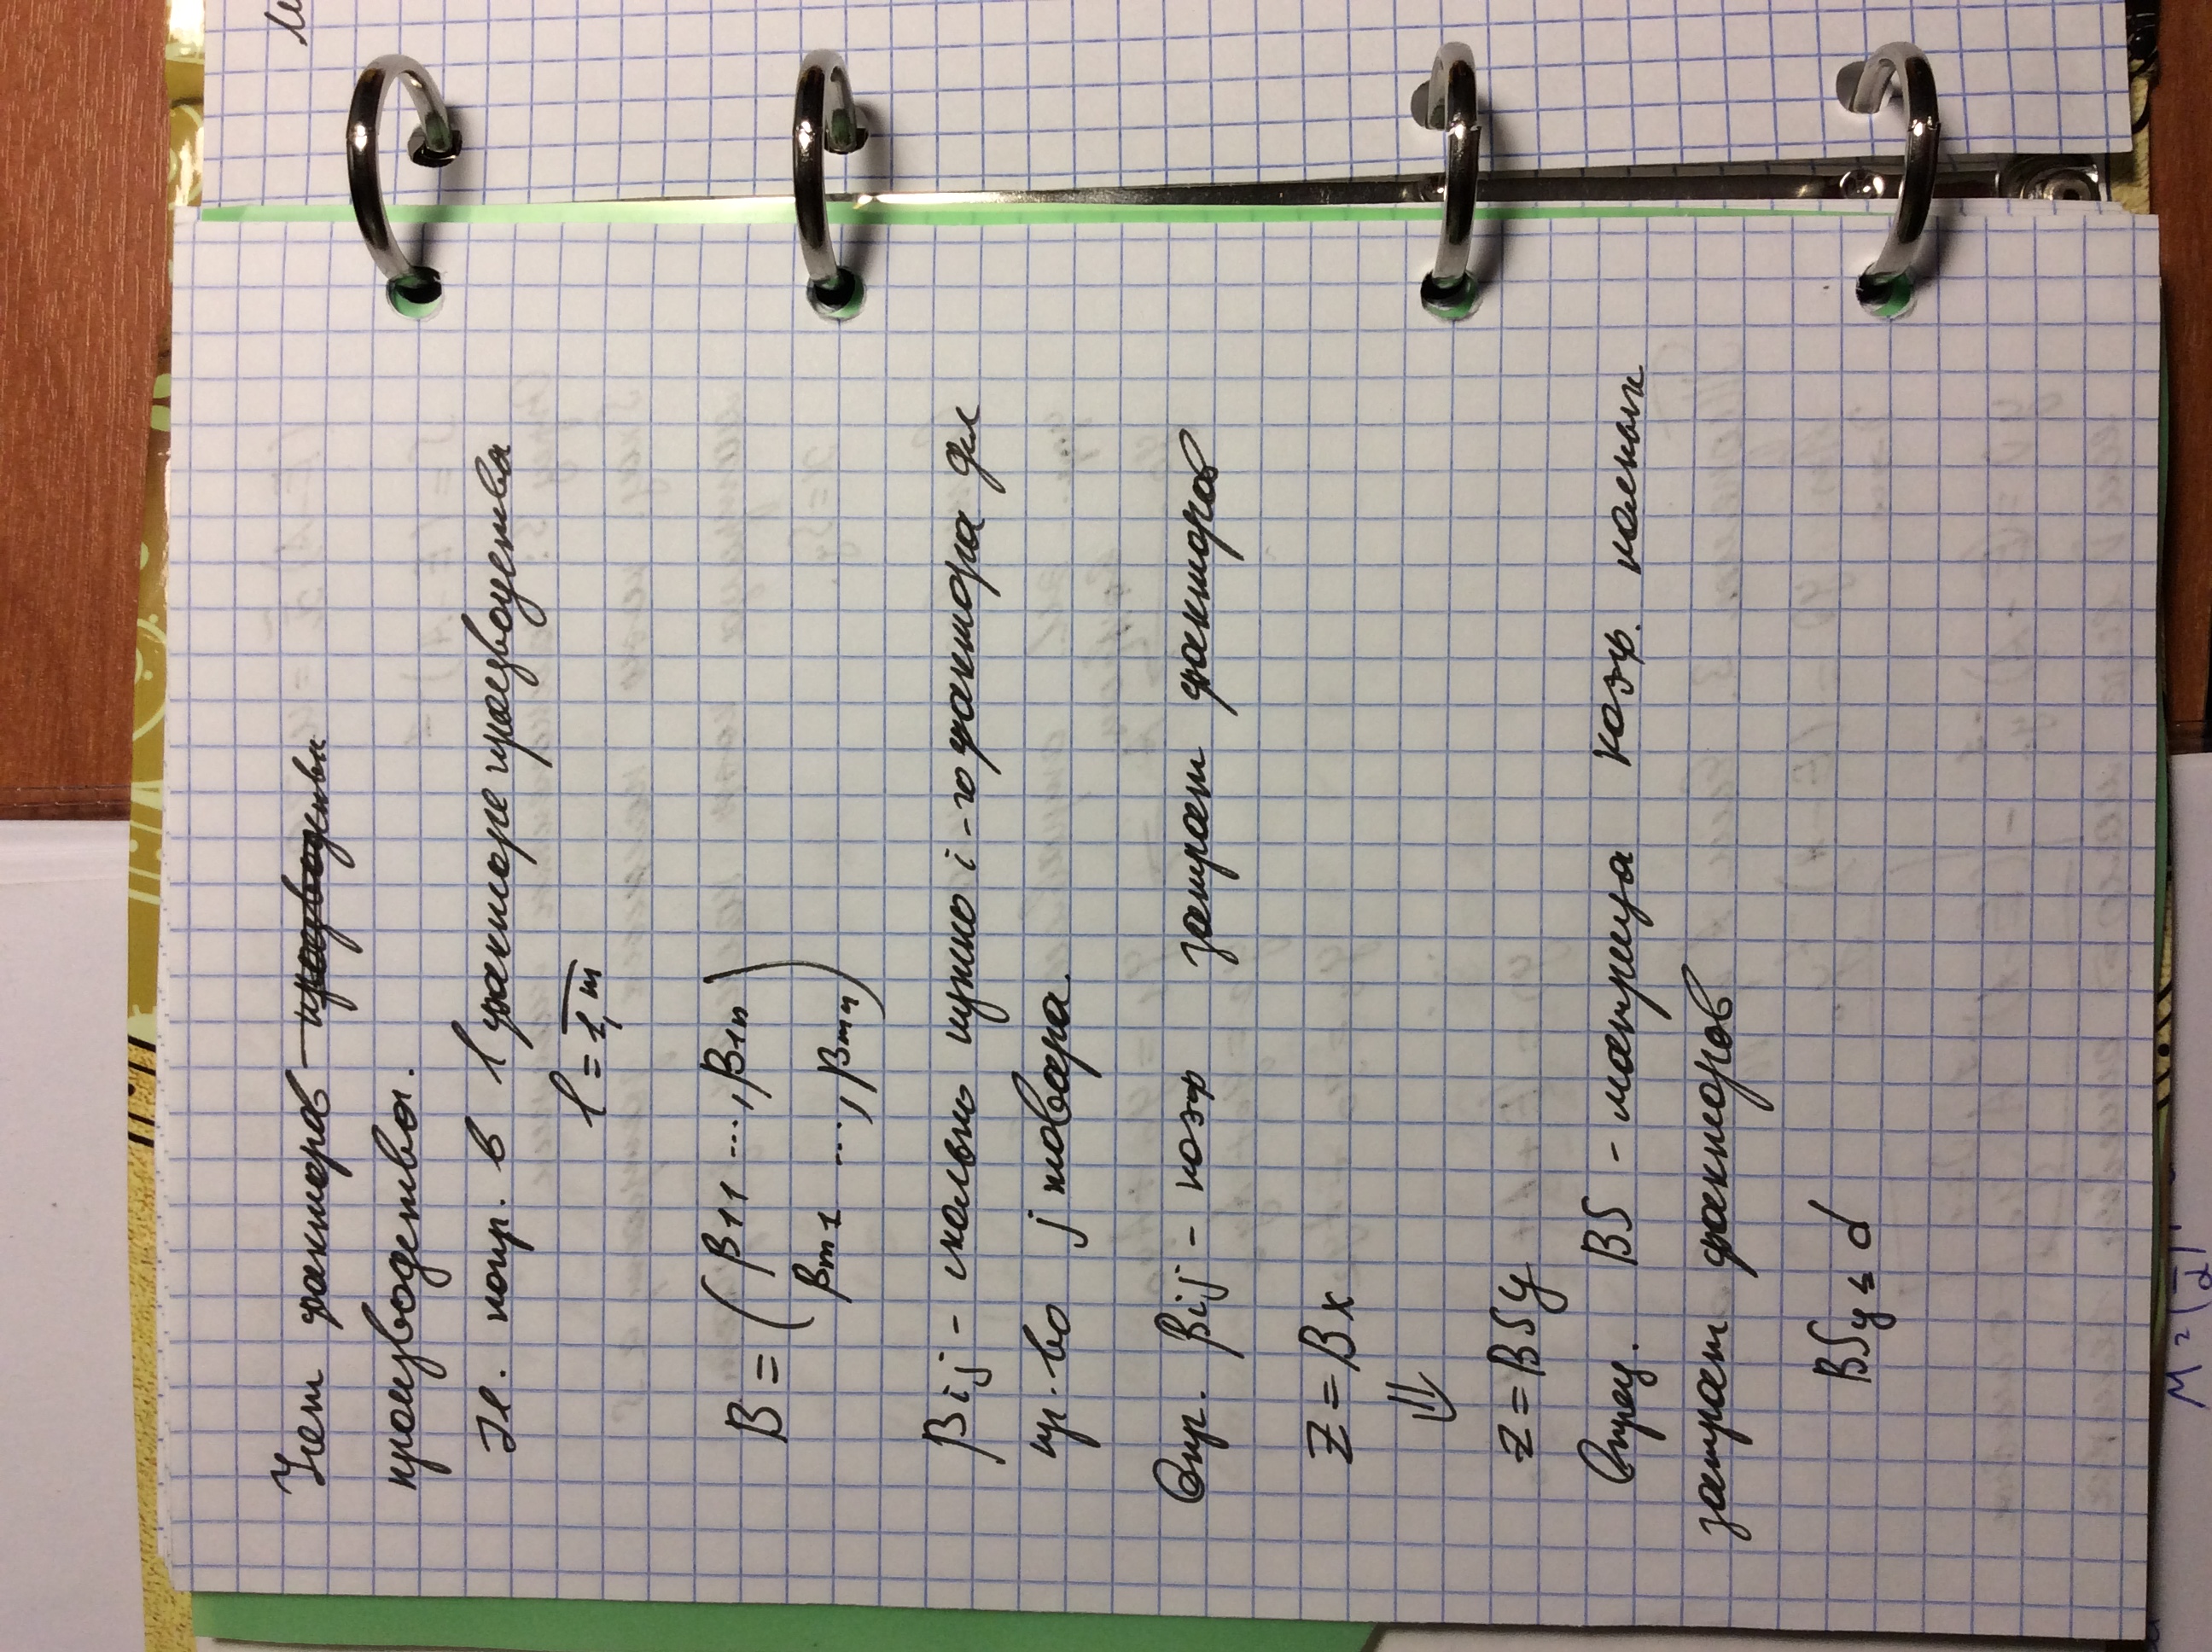 Учет факторов производства
производства.
потр. в l факторе производства
l = 1,m
B = ( β11 ..., β1n
βm1 ..., βmn )
βij - сколько нужно i-го фактора для
пр-во j товара.
Опр. βij - коэф затрат факторов
Z = Bx
⇓
z = BSy
Опред. BS - матрица коэф. полных
затрат факторов
BSy ≤ d